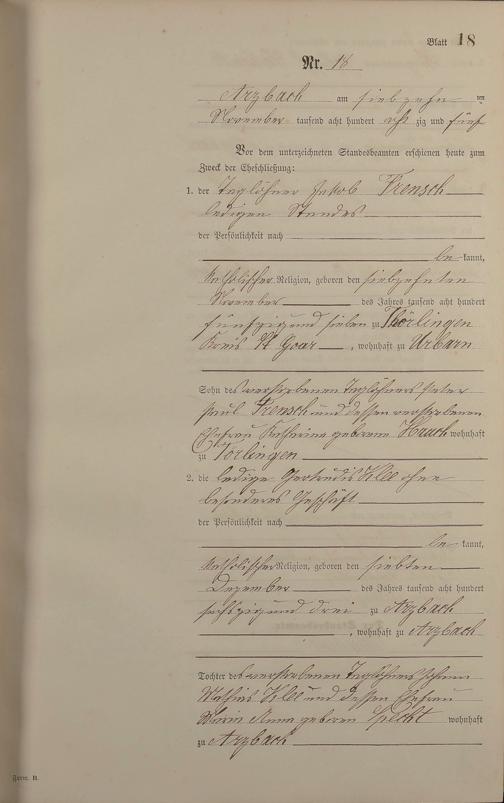 Blatt 18
Nr. 18
Arzbach am siebzehn ten
November tausend acht hundert acht zig und fünf
Vor dem unterzeichneten Standesbeamten erschienen heute zum
Zweck der Eheschließung:
1. der Taglöhner Jakob Frensch
ledigen Standes
der Persönlichkeit nach
be kannt,
katholischer Religion, geboren den siebzehnten
November des Jahres tausend acht hundert
fünfzig und sieben zu Thörlingen
Kreis St Goar, wohnhaft zu Urbarn
Sohn des verstorbenen Taglöhners Peter
Paul Frensch und dessen verstorbenen
Ehefrau Katharina geborene wohnhaft
zu Torlingen
2. die ledige Gertrudis Klee ohne
besonderes Geschäft
der Persönlichkeit nach
be kannt,
katholischer Religion, geboren den siebten
Dezember des Jahres tausend acht hundert
sechszig und drei zu Arzbach
, wohnhaft zu Arzbach
Tochter des verstorbenen Taglöhners Johann
Mathias Klee und dessen Ehefrau
Maria Anna geboren Specht wohnhaft
zu Arzbach
Form. B.